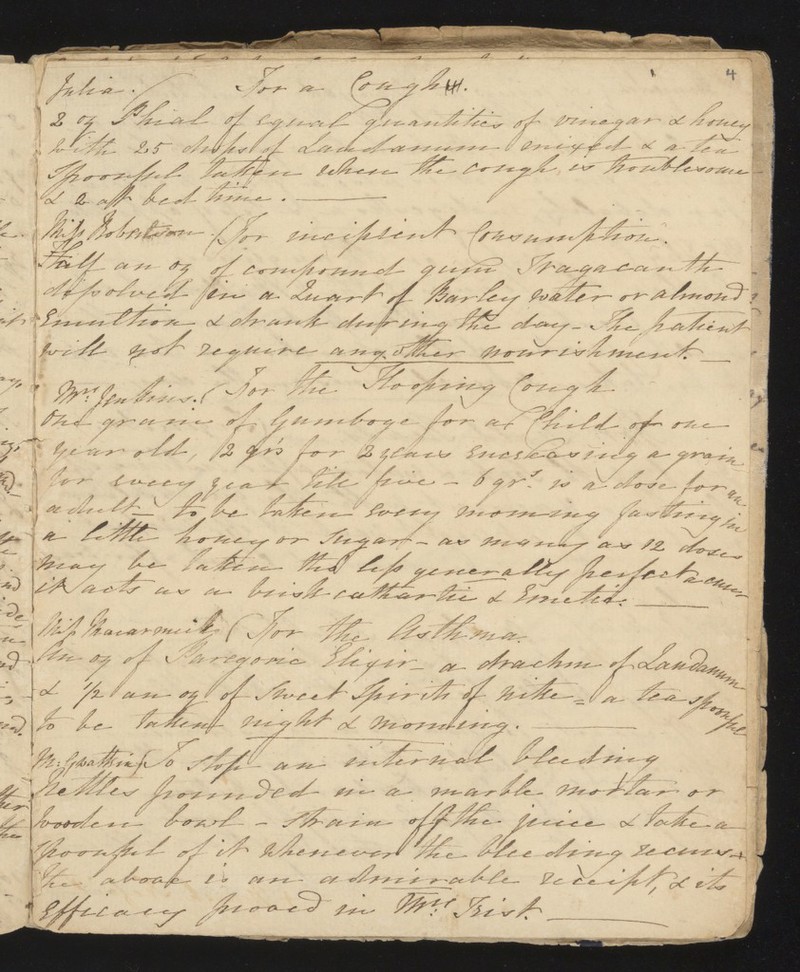 4
Julia. For a Cough.
2 oz Phial of equal quantities of vinegar & honey
with 25 drops of Laudanum mixed & a tea
spoonful taken when the cough is troublesome
& 2 at bed time.
Miss Robinson (For incipient Consumption.
Half an oz of compound gum Tragacanth
dissolved in a Quart of Barley water or almond
Emultion & drank during the day - The patient
will not require any other nourishment.
Mrs. Jenkins. (For the Hooping Cough
One grain of Gumboge for a Child of one
year old, 2 grs for 2 years encreasing a grain
for every year till five - 6 grs. is a dose for an
adult - to be taken every morning fasting in
a little honey or sugar - as many as 12 doses
may be taken tho' less generally perfect a cure
it acts as a brisk cathartic & Emetic.
Miss Macarmick (For the Asthma.
An oz of Paregoric Elixir - a drachm of Laudanum
& 1/2 an oz of Sweet Spirits of nitre = a tea spoonful
to be taken night & morning.
M: Gwatkin (To stop an internal bleeding
Nettles pounded in a marble mortar or
wooden bowl - strain off the juice & take a
spoonful of it whenever the bleeding recurs -
The above is an admirable receipt, & its
Efficacy proved in Mrs. Trist.